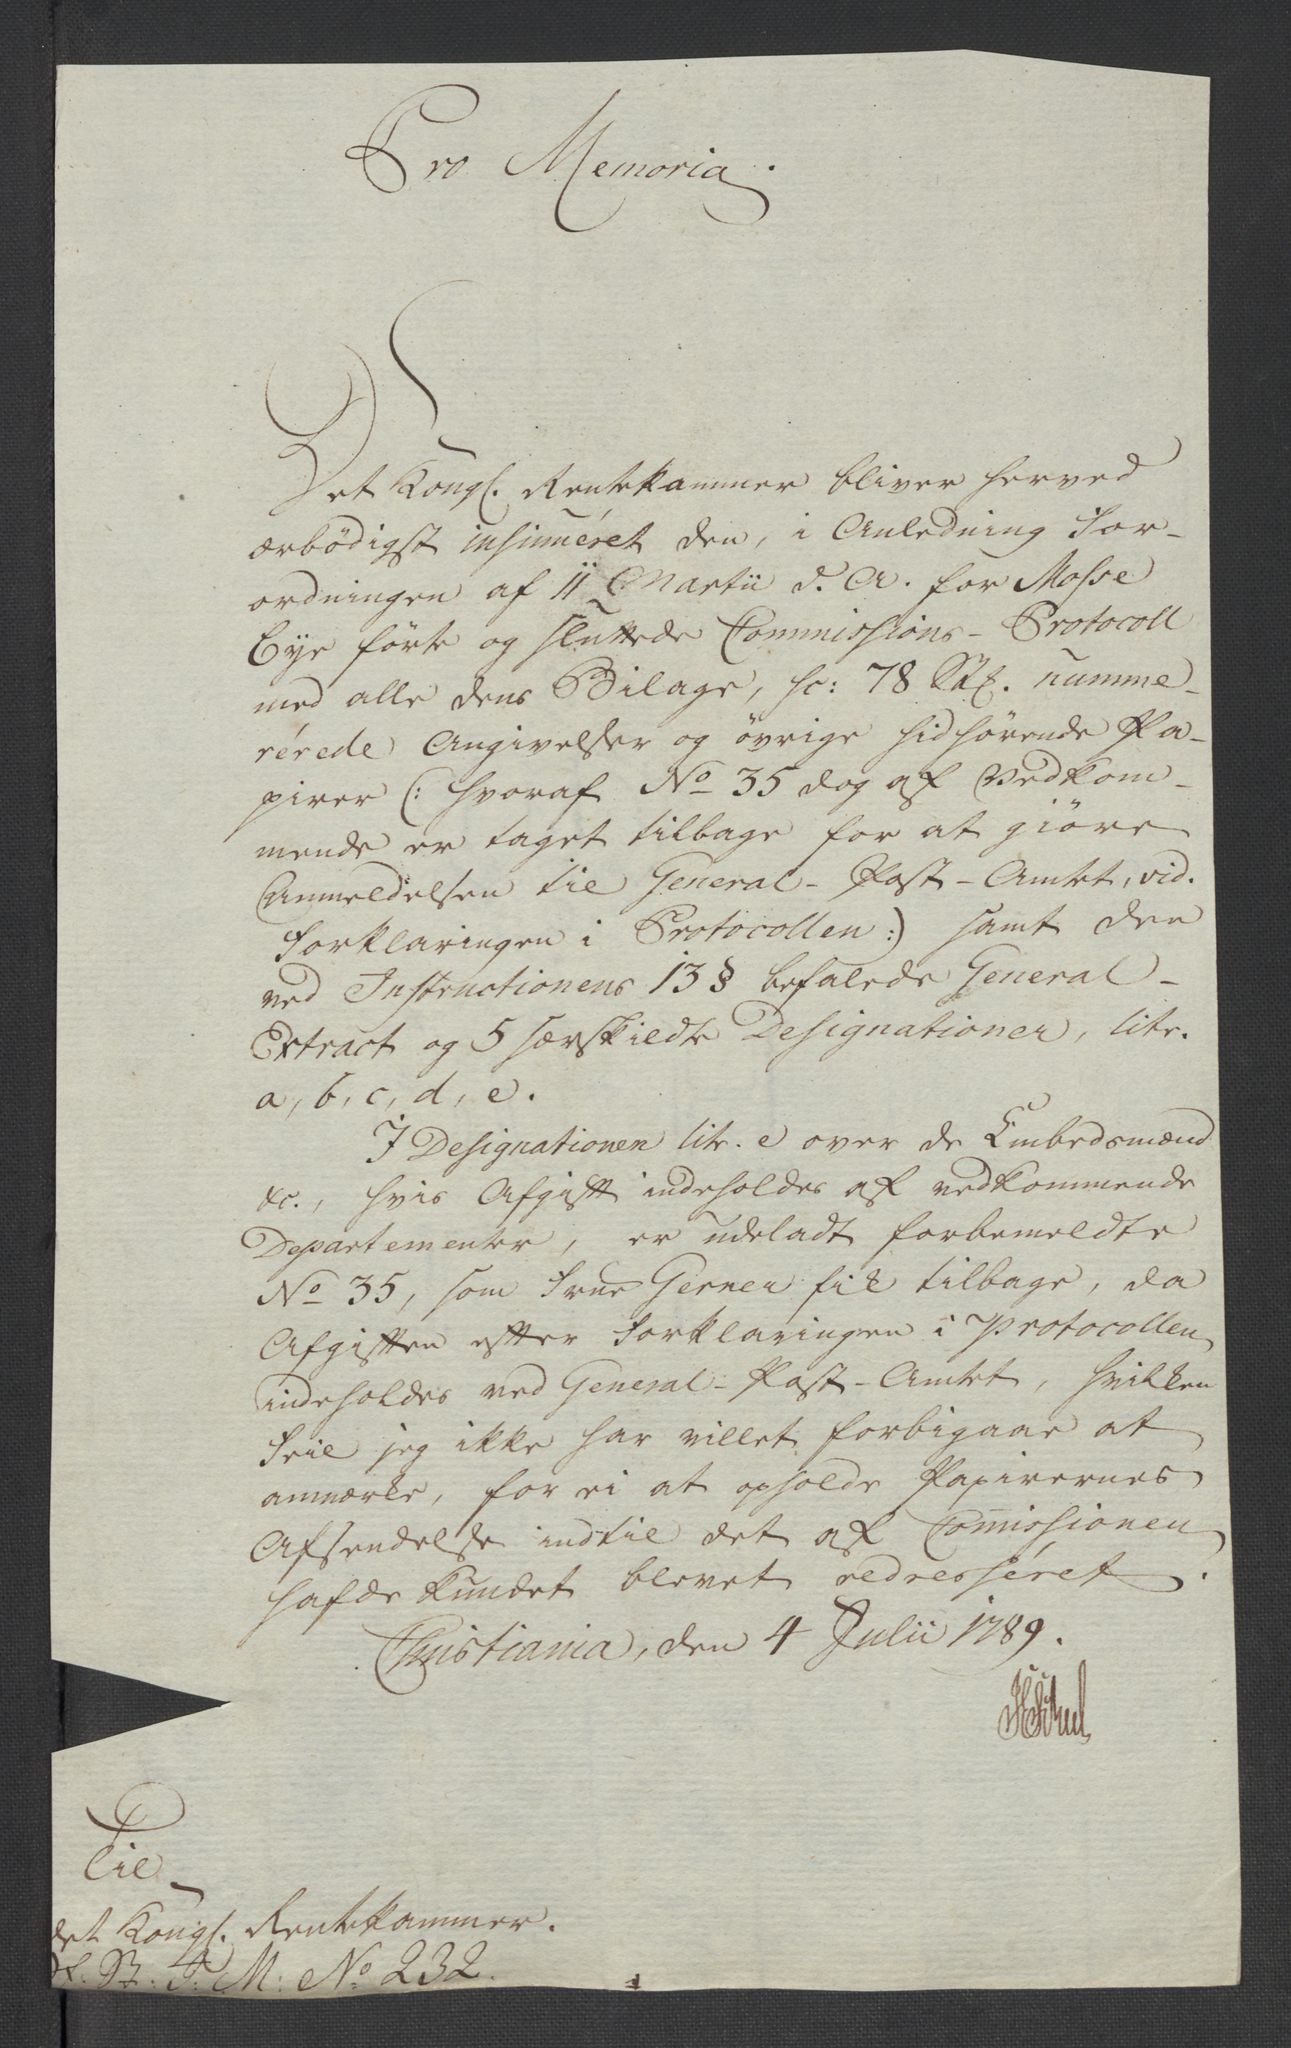 Pro Memoria.
Det Kongl. Rentekammer bliver herved
ærbödigst insinuéret den, i Anledning For-
ordningen af 11 Martii d. A. for Mosse
Bye förte og sluttede Commissions-Protocoll
med alle dens Bilage, sc: 78 Stk. numme-
rérede Angivelser og övrige hidhørende Pa-
pirer (: hvoraf No 35 dog af Vedkom-
mende er taget tilbage for at giöre
Anmeldelsen til General-Post-Amtet, vid.
Forklaringen i Protocollen :) samt den
ved Instructionens 13 § befalede General-
Extract og 5 særskildte Designationer, litr.
a, b, c, d, e.
I Designationen litr. e over de Embedsmænd
&c., hvis Afgift indeholdes af vedkommende
Departementer, er udeladt forbemeldte
No 35, som Frue Gerner fik tilbage, da
Afgiften efter Forklaringen i Protocollen
indeholdes ved General-Post-Amtet, hvilken
Feil jeg ikke har villet forbigaae at
anmærke, for ei at opholde Papirernes
Afsendelse indtil det af Comissionen
hafde kundet blevet redresséret.
Christiania, den 4 Julii 1789.
Til
det Kongl. Rentekammer.
No 232.